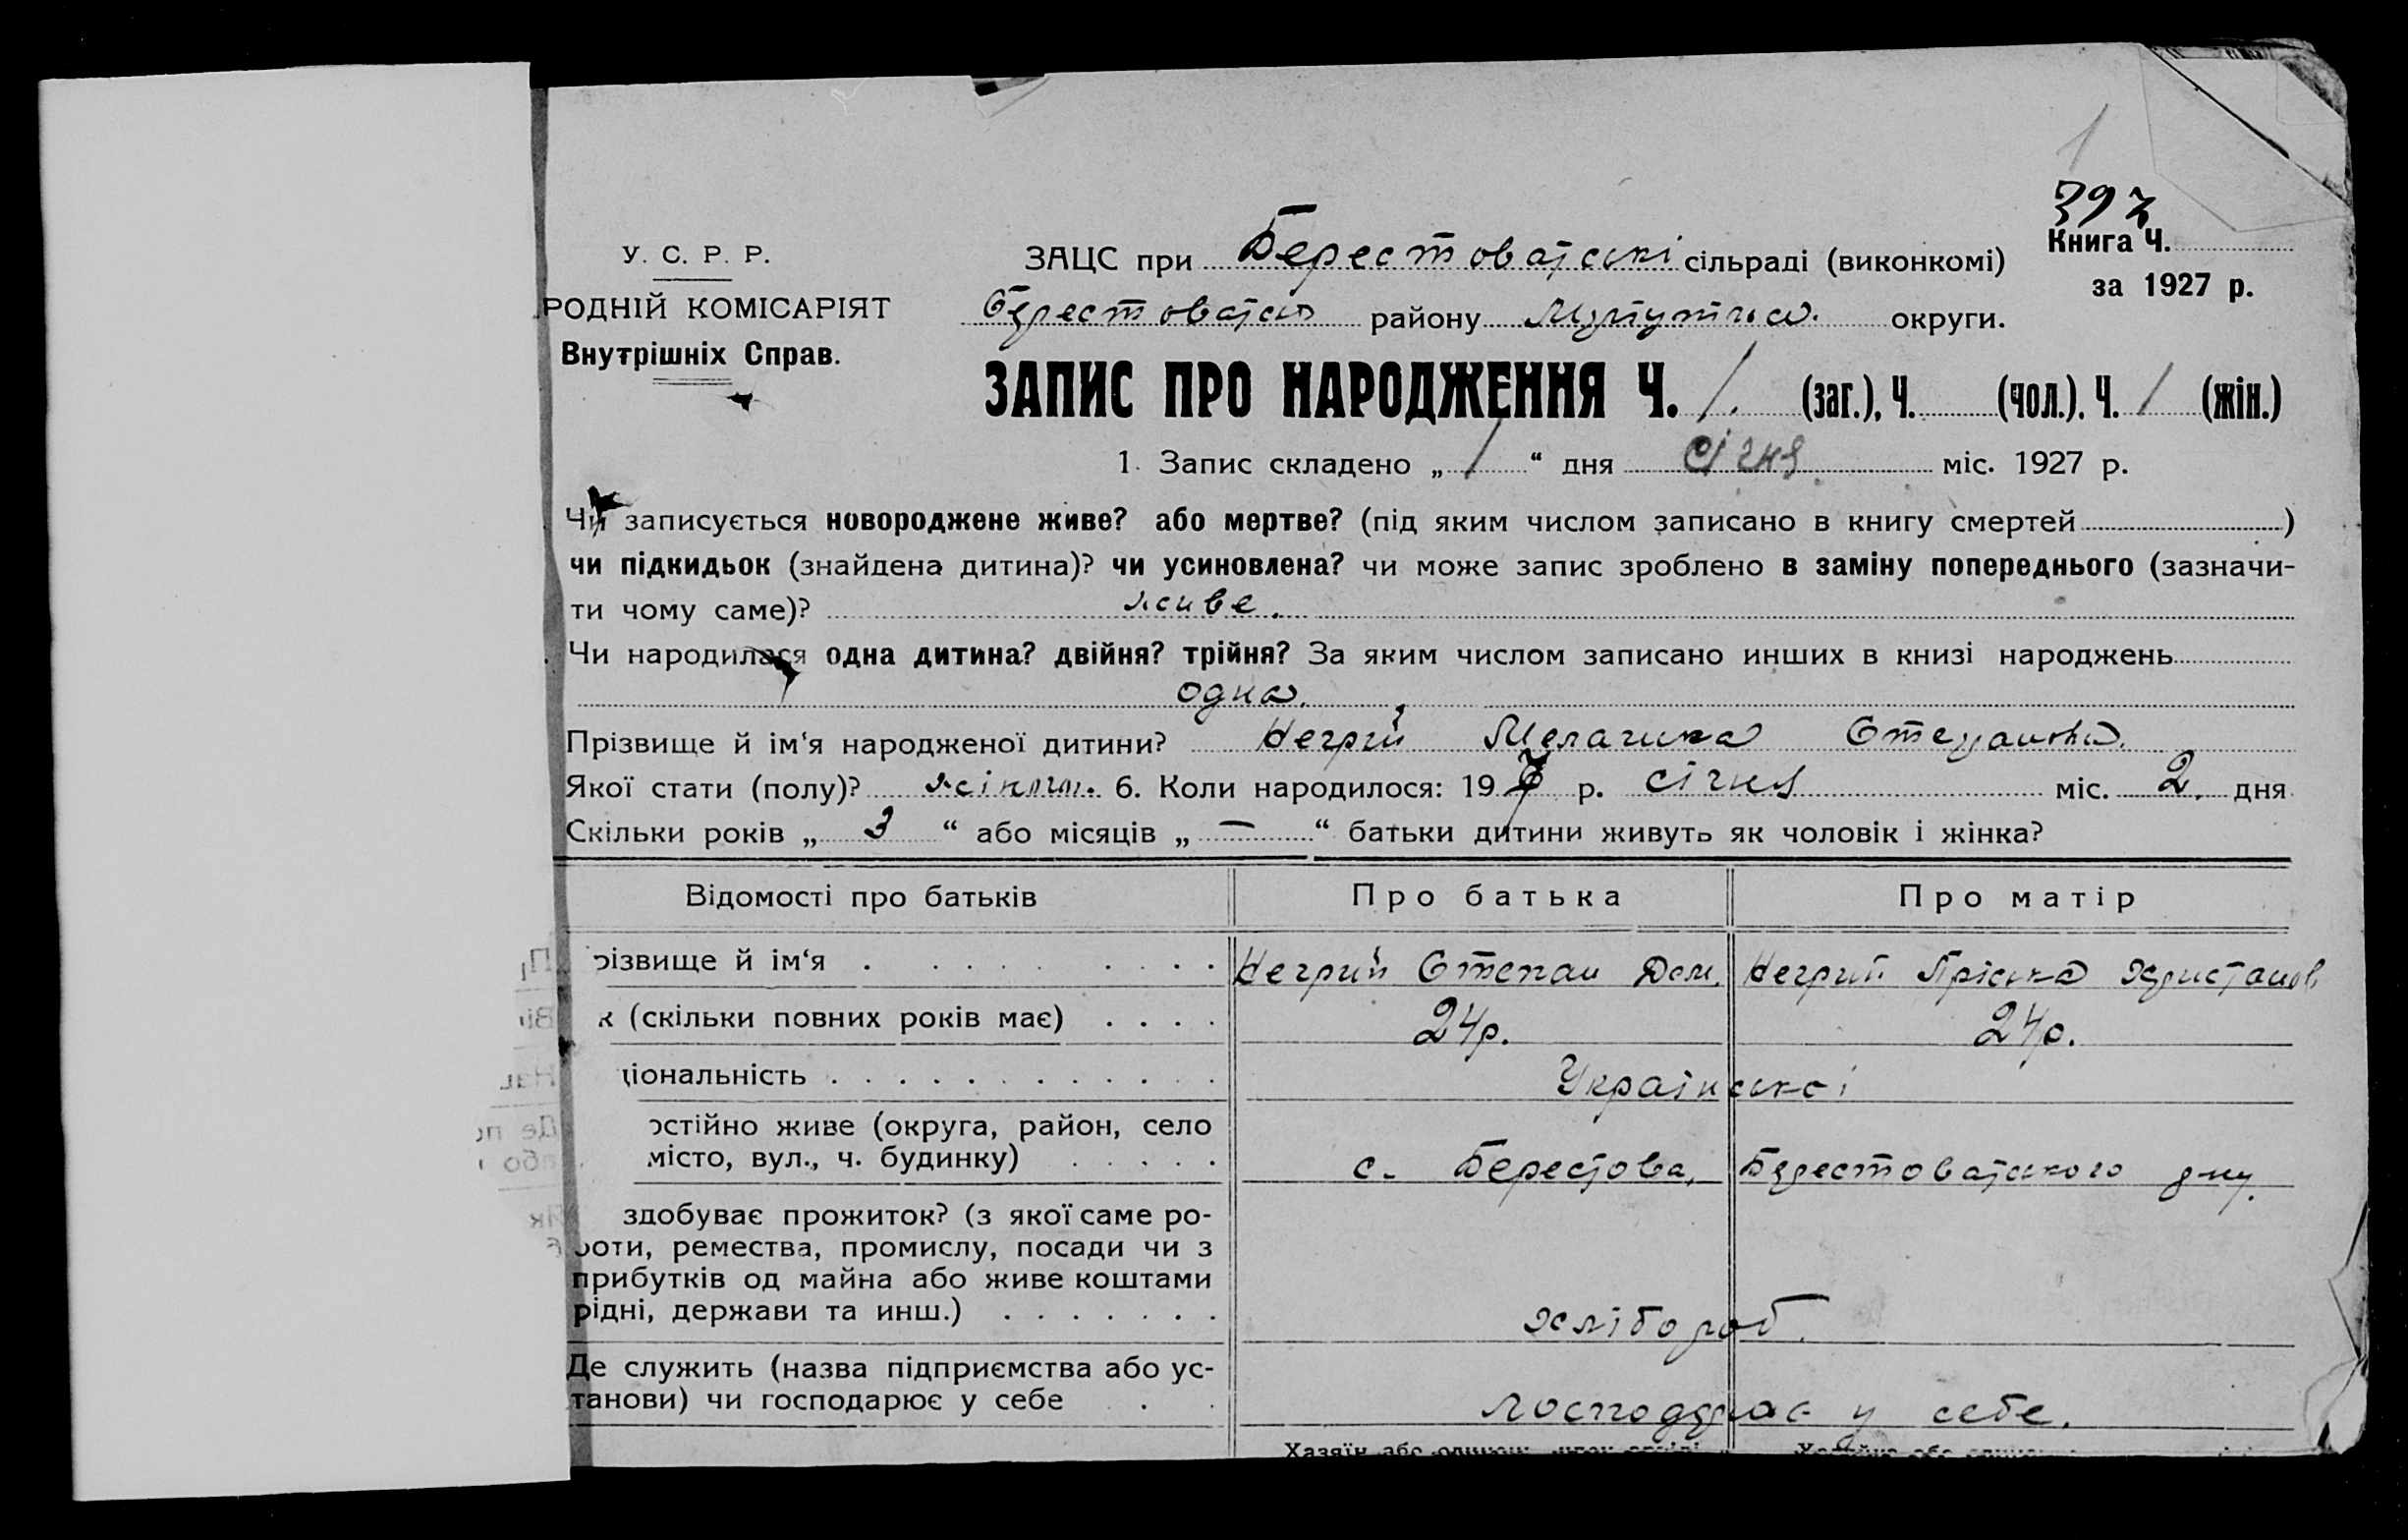 1
397
У. С. Р. Р.
ЗАЦС при Берестоватські сільраді (виконкомі)
Книга Ч.
за 1927 р.
РОДНІЙ КОМІСАРІЯТ
Берестоватсь району округи.
Внутрішніх Справ.
ЗАПИС ПРО НАРОДЖЕННЯ Ч. 1. (заг.), Ч. (чол.), Ч. 1 (жін.)
1. Запис складено „ 1 “ дня січня міс. 1927 р.
Чи записується новороджене живе? або мертве? (під яким числом записано в книгу смертей )
чи підкидьок (знайдена дитина)? чи усиновлена? чи може запис зроблено в заміну попереднього (зазначи-
ти чому саме)? живе.
Чи народилася одна дитина? двійня? трійня? За яким числом записано инших в книзі народжень
одна.
Прізвище й ім‘я народженої дитини? Негрий Меланика Степанова.
Якої стати (полу)? жіноч. 6. Коли народилося: 19 7 р. січня міс. 2. дня
Скільки років „ 3 “ або місяців „ — “ батьки дитини живуть як чоловік і жінка?
Відомості про батьків Про батька Про матір
різвище й ім‘я . . . . . . . . . Негрий Степан Дем. Негрий Пріська Христанов
к (скільки повних років має) . . . . 24р. 24р.
ціональність . . . . . . . . . . . . Українські
остійно живе (округа, район, село
місто, вул., ч. будинку) . . . . . с. Берестова, Берестоватського р-ну.
здобуває прожиток? (з якої саме ро-
боти, ремества, промислу, посади чи з
прибутків од майна або живе коштами
рідні, держави та инш.) . . . . . . . хлібороб.
Де служить (назва підприємства або ус-
танови) чи господарює у себе . . господарює у себе.